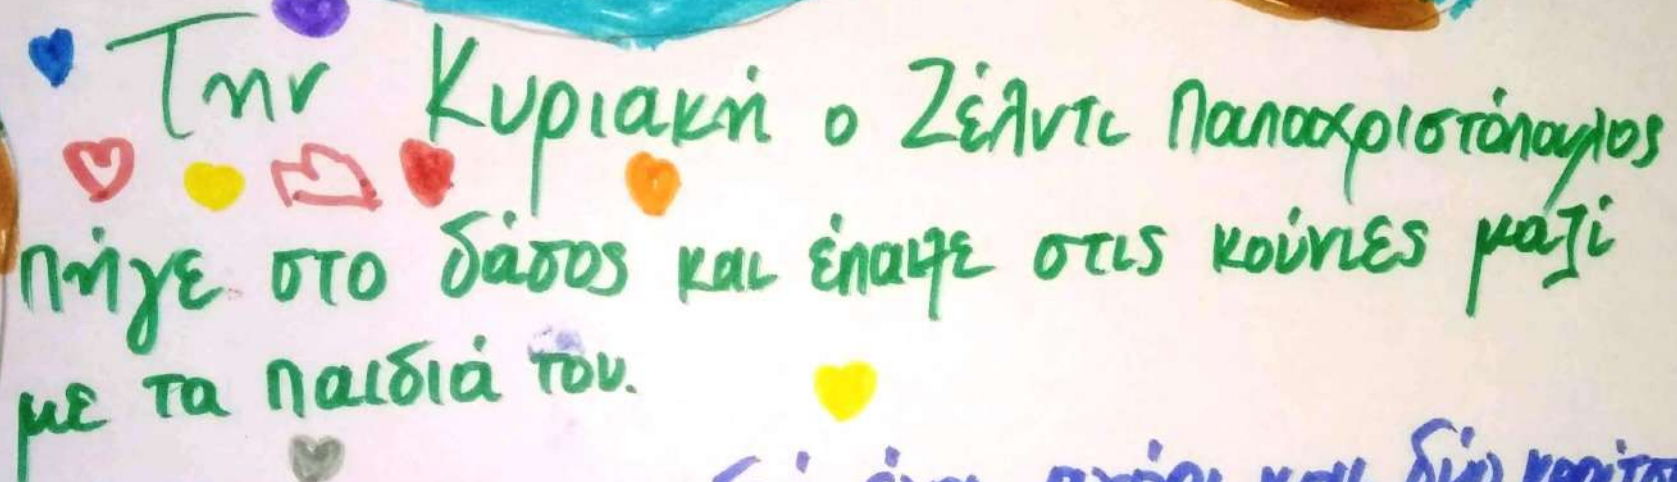 Την Κυριακή ο Ζέλντι Παπαχριστόπουλος
πήγε στο δάσος και έπαιξε στις κούνιες μαζί
με τα παιδιά του.